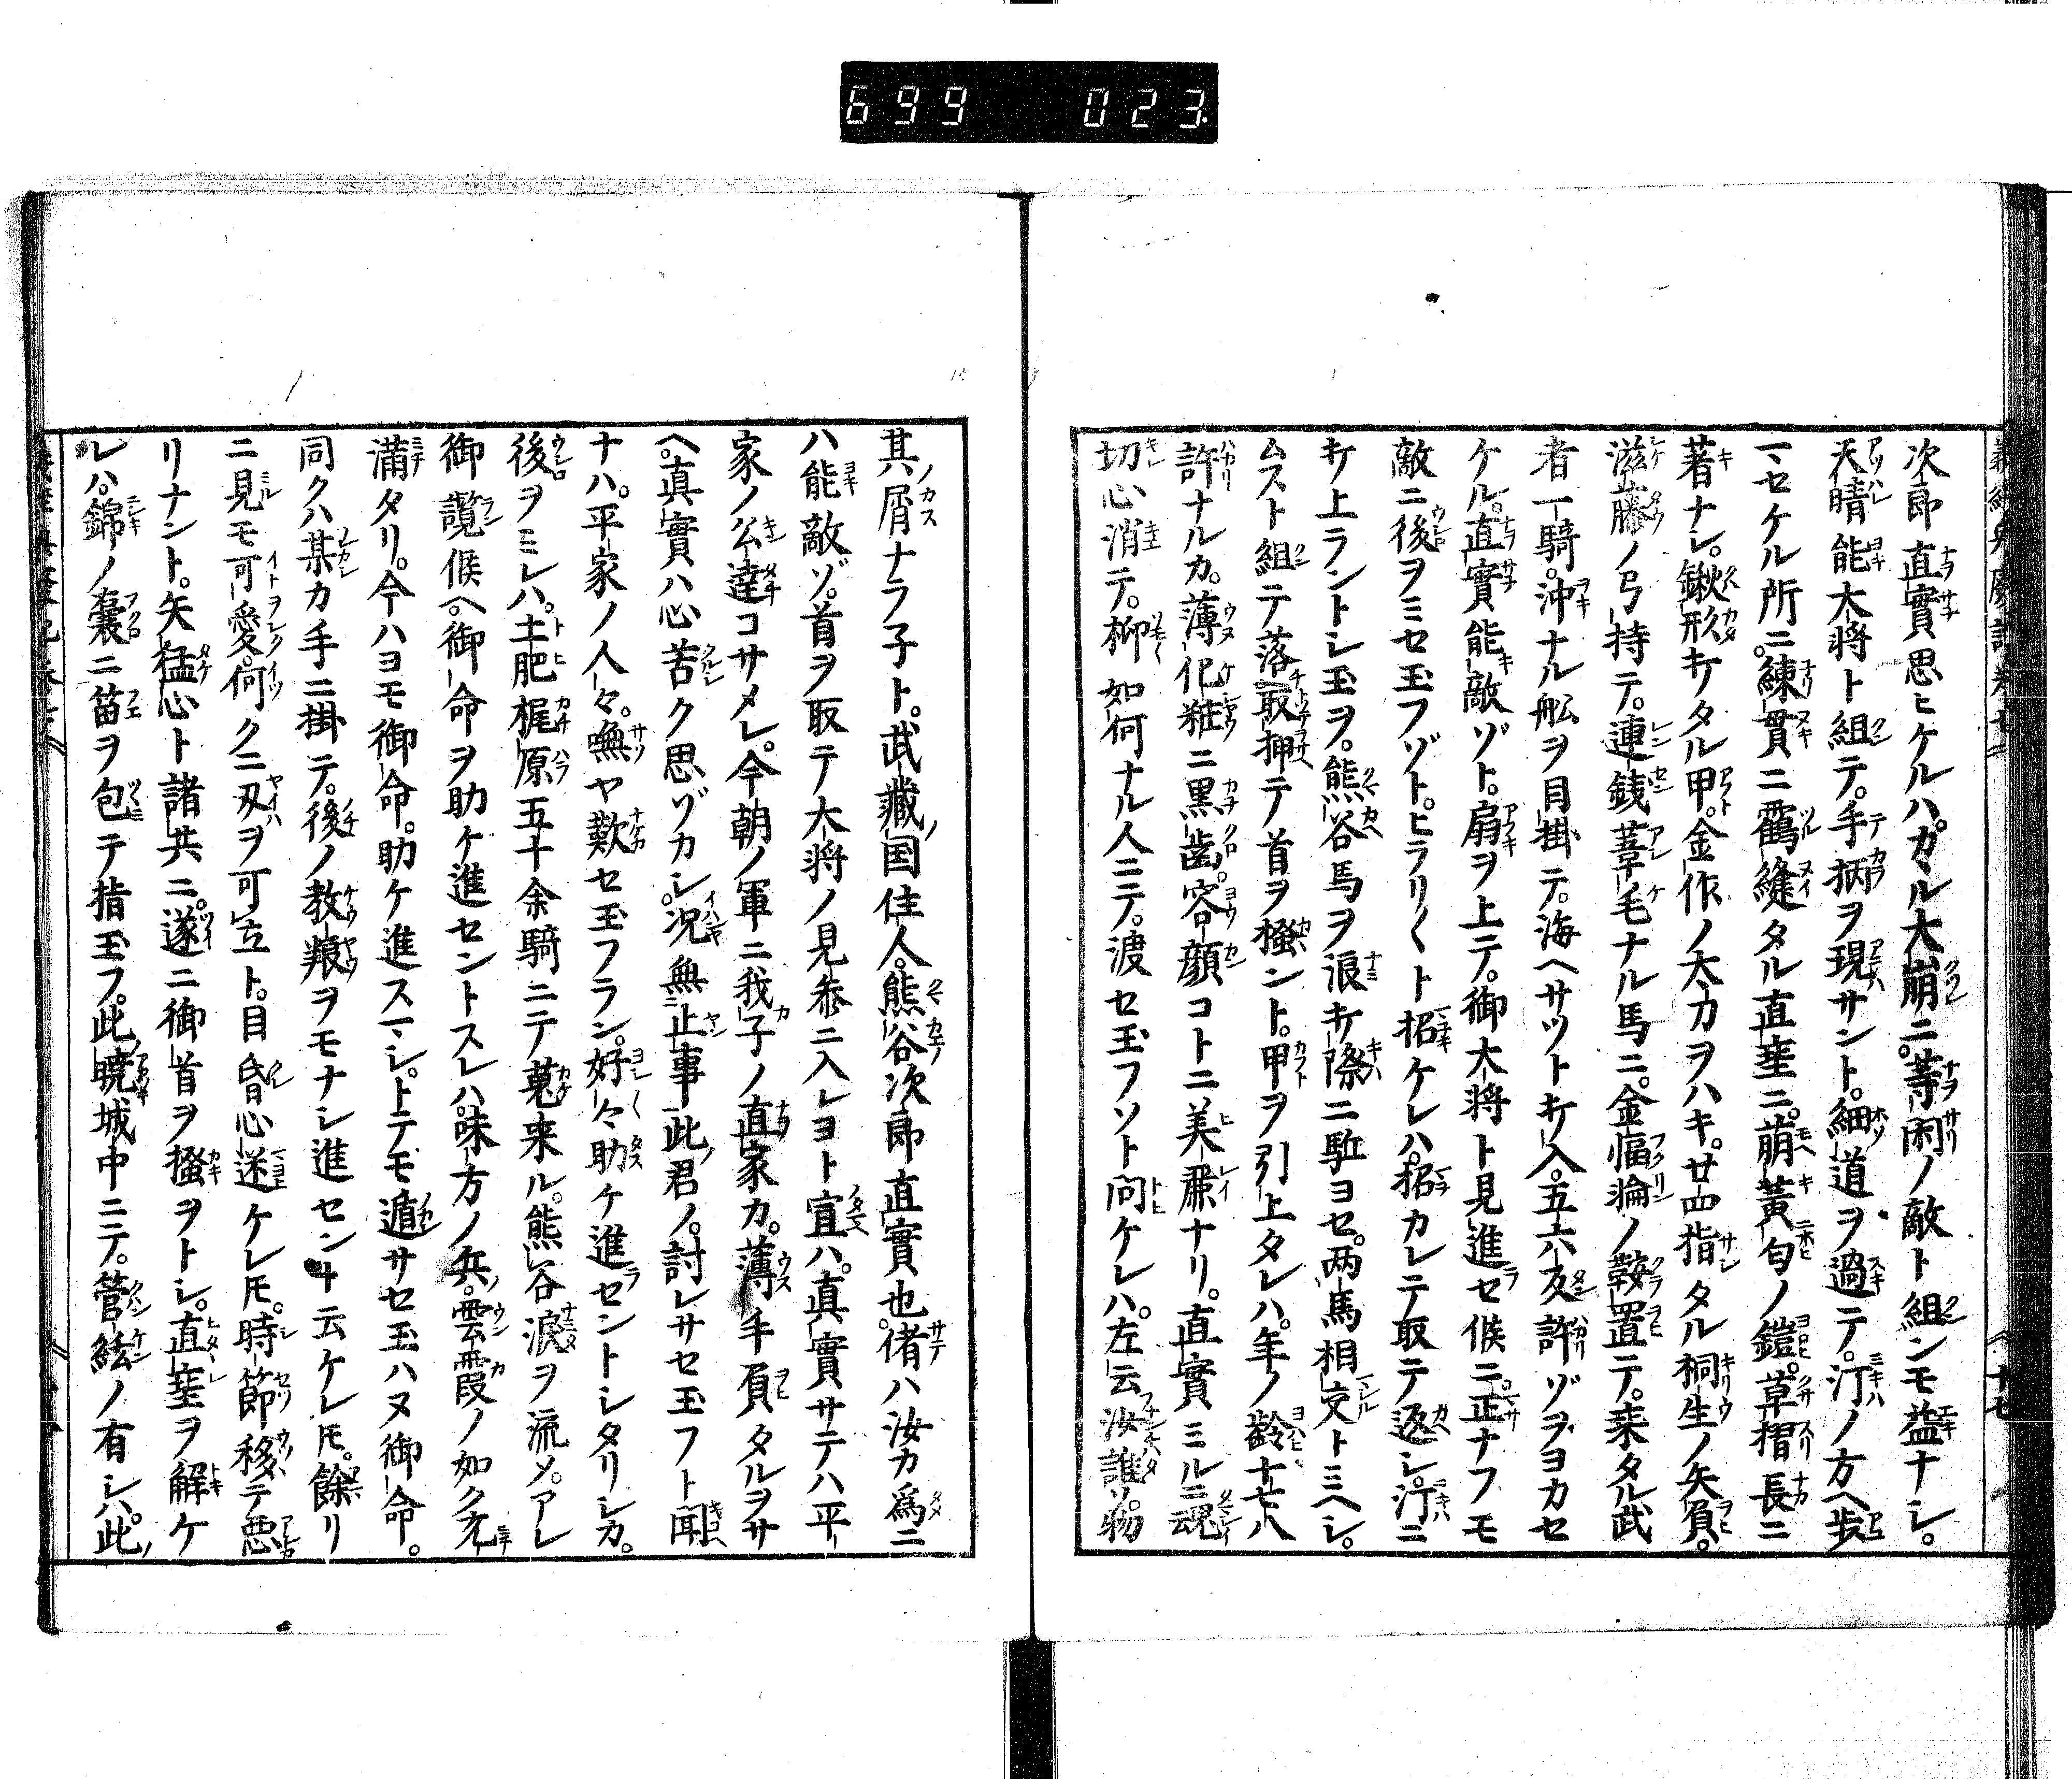 699 023
次郎直實思ヒケルハ。カヽル大崩ニ。等闲ノ敵ト組ンモ益ナシ。
天晴能大将ト組テ。手柄ヲ現サント。細道ヲ過テ。汀ノ方ヘ歩
マセケル所ニ。練貫ニ靍縫タル直垂ニ。萠黄匂ノ鎧。草摺長ニ
著ナシ。鍬形キタル甲。金作ノ太刀ヲハキ。廿四指タル桐生ノ矢負。
滋藤ノ弓持テ。連銭葦毛ナル馬ニ。金幅淪ノ鞍置テ。来タル武
者一騎。沖ナル舩ヲ目掛テ。海ヘサツトキ入。五六反許ゾヲヨカセ
ケル。直實能敵ゾト。扇ヲ上テ。御大将ト見進セ候ニ。正ナフモ
敵ニ後ヲミセ玉フゾト。ヒラリ〱ト招ケレハ。招カレテ取テ返シ。汀ニ
キ上ラントシ玉ヲ。熊谷馬ヲ浪キ際ニ駈ヨセ。两馬相交トミヘシ。
ムスト組テ落。取押テ首ヲ搔ント。甲ヲ引上タレハ。年ノ齢十七八
許ナルカ。薄化粧ニ黒歯。容顔コトニ美麗ナリ。直實ミルニ魂
切心消テ。抑如何ナル人ニテ。渡セ玉フソト問ケレハ。左云汝誰ソ。物
其屑ナラ子ト。武藏国住人。熊谷次郎直實也。偖ハ汝カ爲ニ
ハ能敵ゾ。首ヲ取テ大将ノ見参ニ入レヨト宣ハ。真實サテハ平
家ノ公達コサメレ。今朝ノ軍ニ我子ノ直家カ。薄手負タルヲサ
ヘ。真實ハ心苦ク思ゾカシ。况無止事此君ノ。討レサセ玉フト聞
ナハ。平家ノ人々。嘸ヤ歎セ玉フラン。好々助ケ進セントシタリシカ。
後ヲミレハ。土肥梶原五十余騎ニテ蒐来ル。熊谷淚ヲ流メ。アレ
御覽候ヘ。御命ヲ助ケ進セントスレハ。味方ノ兵。雲霞ノ如ク充
滿タリ。今ハヨモ御命。助ケ進スマシ。トテモ遁サセ玉ハヌ御命。
同クハ某カ手ニ掛テ。後ノ教飬ヲモナシ進センヰ云ケレ𪜈。餘リ
ニ見モ可愛。何クニ刄ヲ可立ト。目昏心迷ケレ𪜈。時節移テ悪
リナント。矢猛心ト諸共ニ。遂ニ御首ヲ搔ヲトシ。直垂ヲ解ケ
レハ。錦ノ囊ニ笛ヲ包テ指玉フ。此暁城中ニテ。管絃ノ有シハ。此